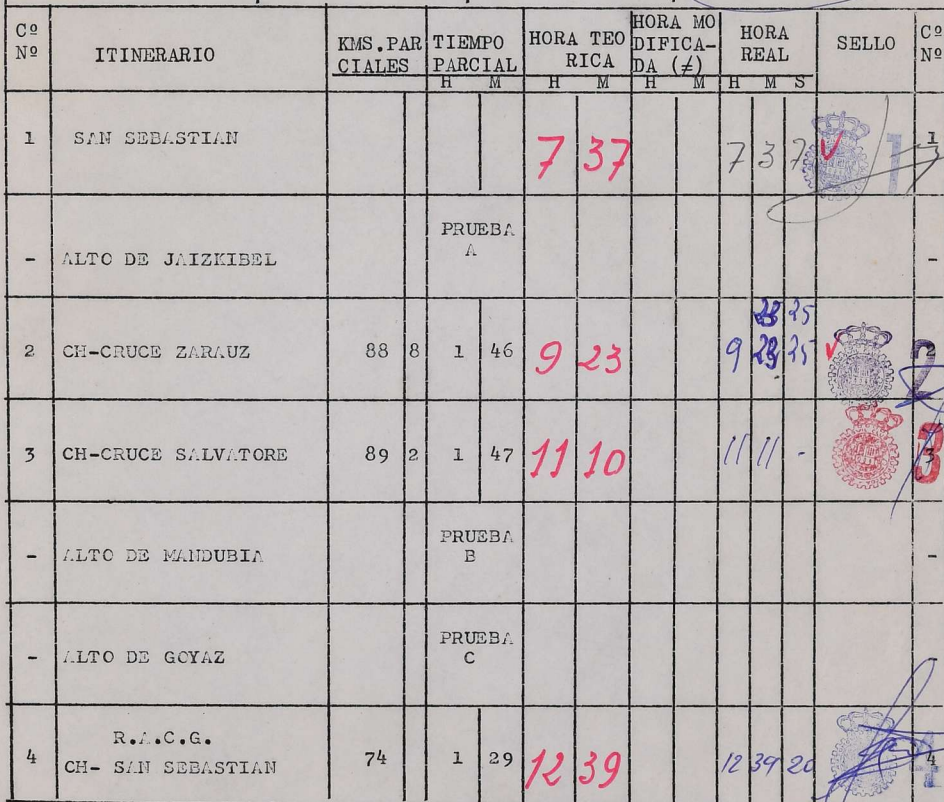 Cº Nº ITINERARIO KMS.PAR CIALES TIEMPO PARCIAL HORA TEO RICA HORA MO DIFICA- DA (≠) HORA REAL SELLO Cº Nº
H M H M H M H M S
1 SAN SEBASTIAN 7 37 7 37 1 1
- ALTO DE JAIZKIBEL PRUEBA A -
23 25
2 CH-CRUCE ZARAUZ 88 8 1 46 9 23 9 23 25 2 2
3 CH-CRUCE SALVATORE 89 2 1 47 11 10 11 11 - 3 3
- ALTO DE MANDUBIA PRUEBA B -
- ALTO DE GOYAZ PRUEBA C -
4 R.A.C.G. CH- SAN SEBASTIAN 74 1 29 12 39 12 39 20 4 4